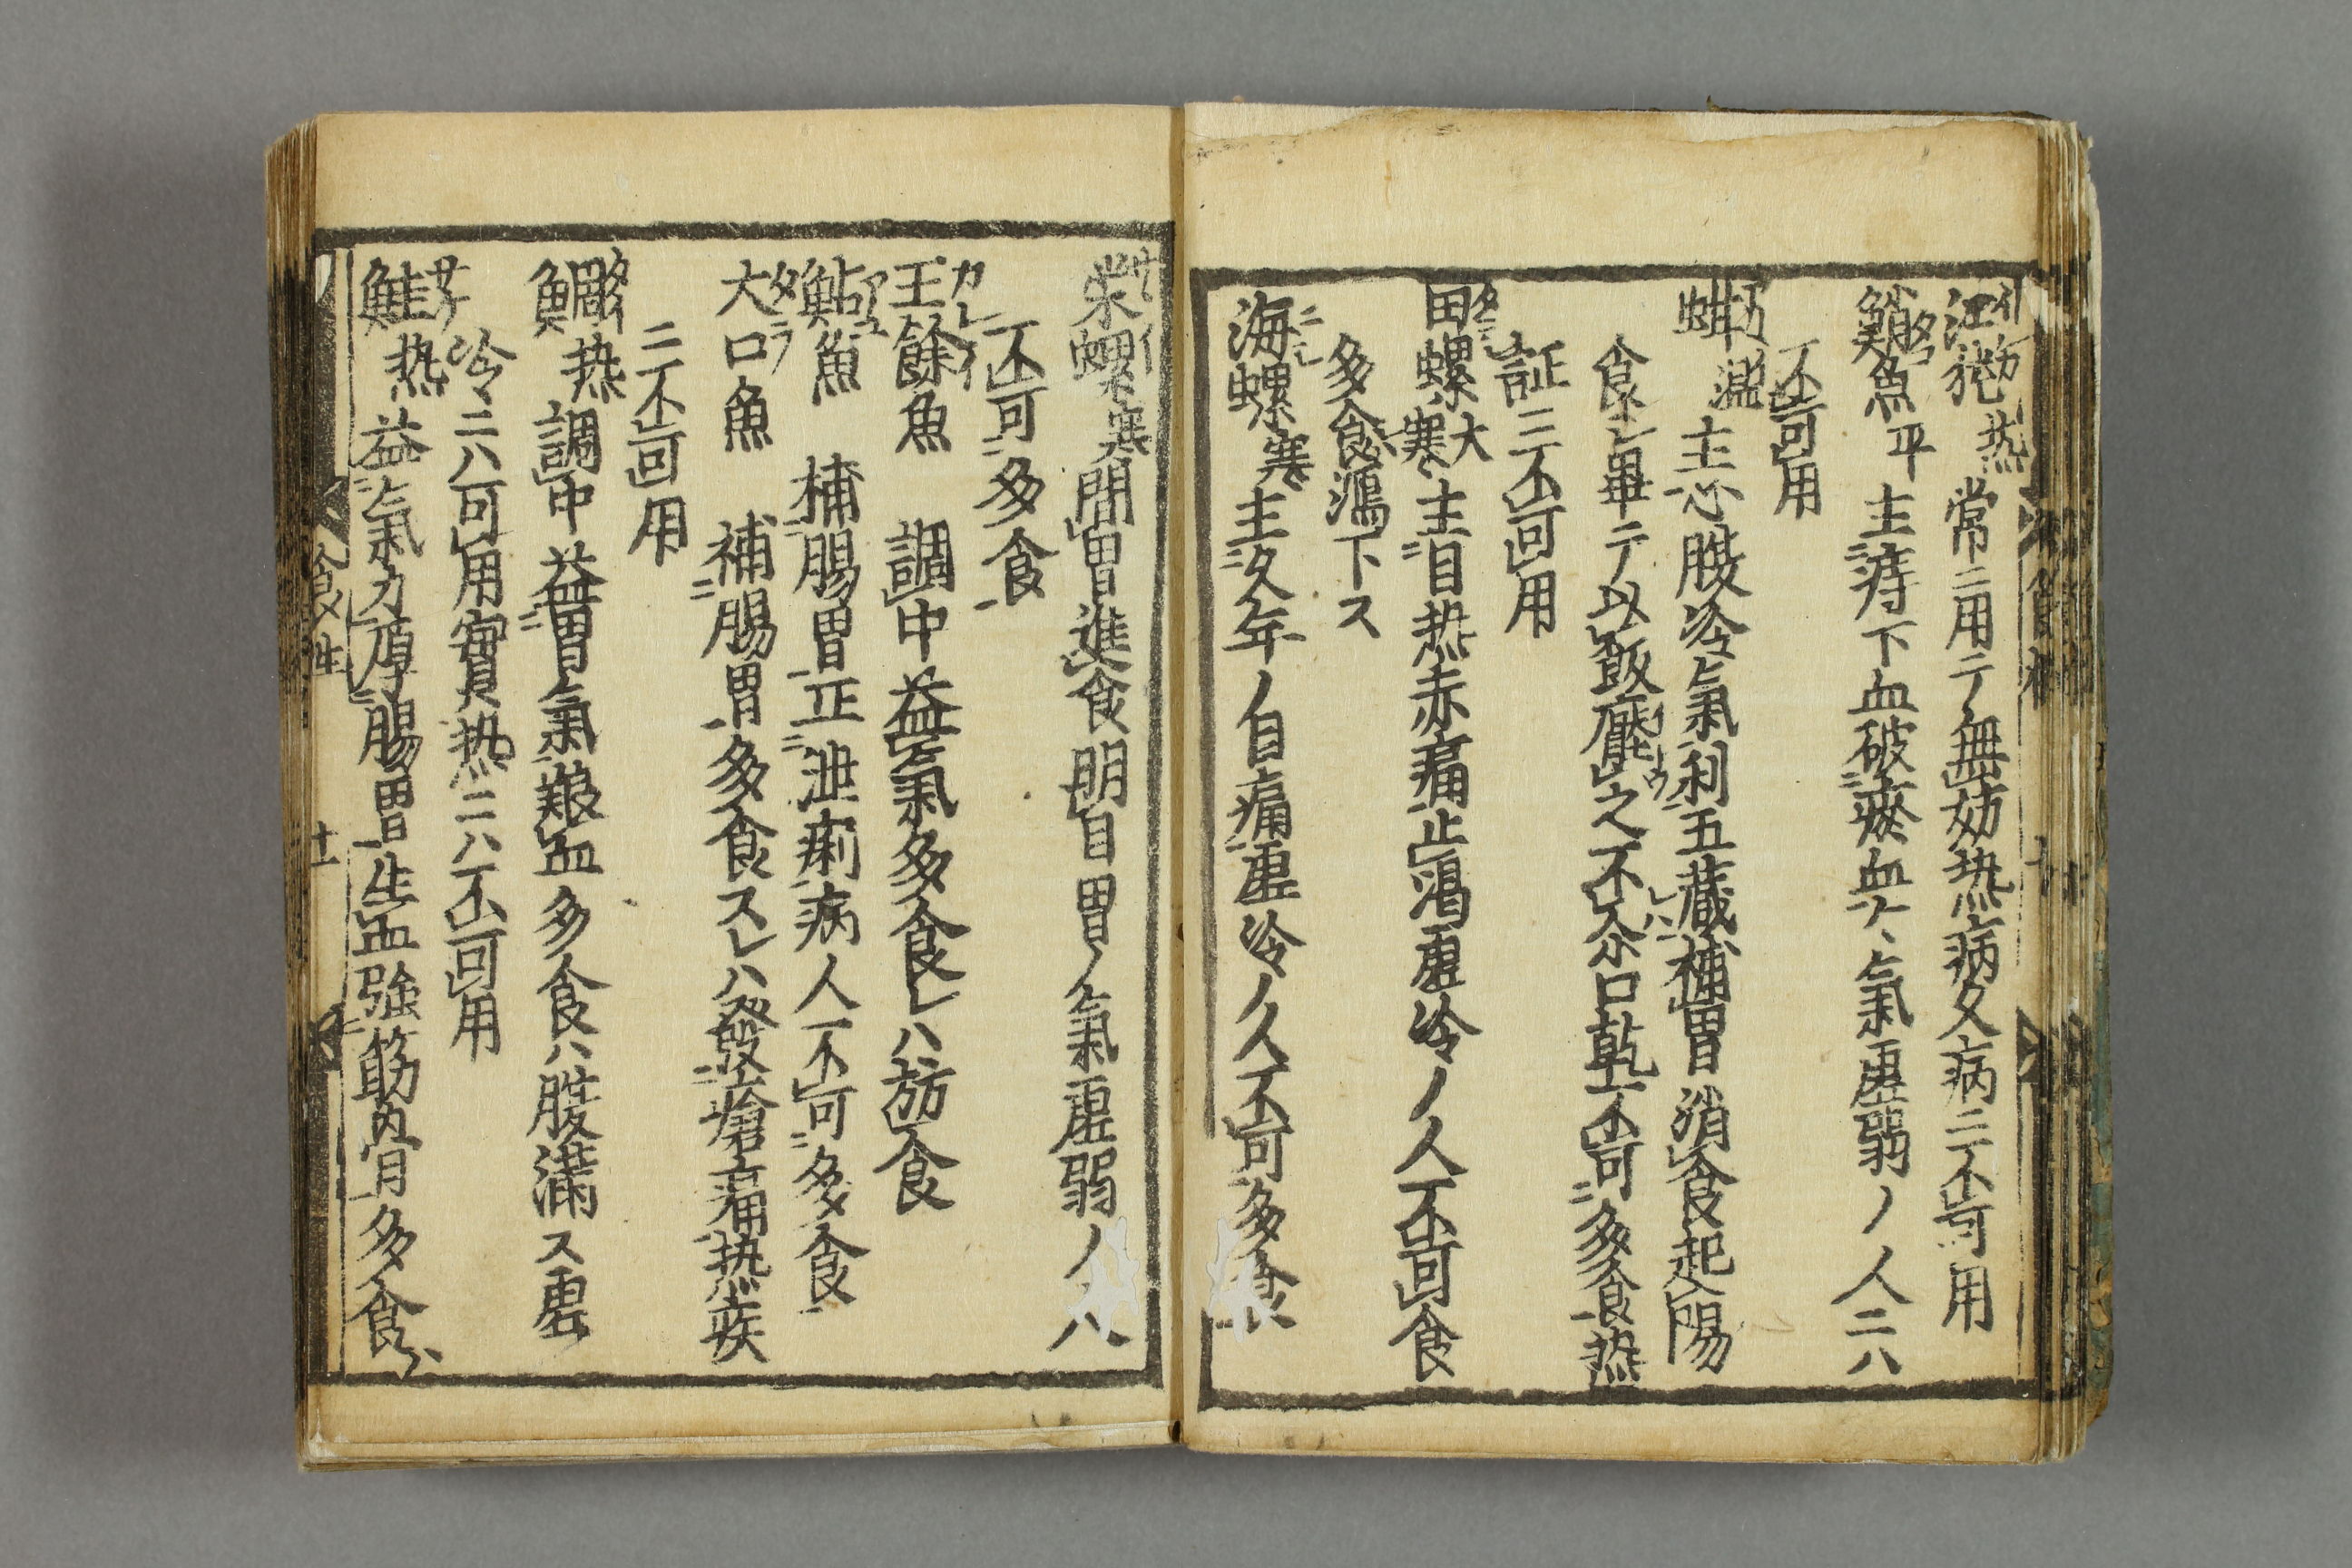 江㹠 熱 常ニ用テ無妨熱病久病ニ不可用
魚平 主痔下血破瘀血ヲ氣虚弱ノ人ニハ
不可用
蚶 温 主心腹冷氣利五藏補胃消食起陽
食畢テ以飯壓之不レハ尒口乾不可多食熱
証ニ不可用
田螺 大寒 主目熱赤痛止渇虚冷ノ人不可食
多食瀉下ス
海螺 寒 主久年ノ目痛虚冷ノ人不可多食
栄螺 寒 開胃進食明目胃ノ氣虚弱ノ人ハ
不可多食
王餘魚 調中益氣多食レハ妨食
鮎魚 補腸胃止泄痢病人不可多食
大口魚 補腸胃多食スレハ發瘡痛熱疾
ニ不可用
鯛 熱 調中益胃氣散血多食ハ腹満ス虚
冷ニハ可用實熱ニハ不可用
鮭 熱 益氣力厚腸胃生血強筋骨多食
食性 十一